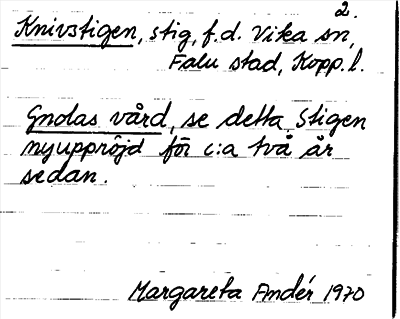 2.
Knivstigen, stig, f.d. Vika sn,
Falu stad, Kopp. l.
Gnolas vård, se detta. Stigen
nyuppröjd för c:a två år
sedan.
Margareta Andér 1970